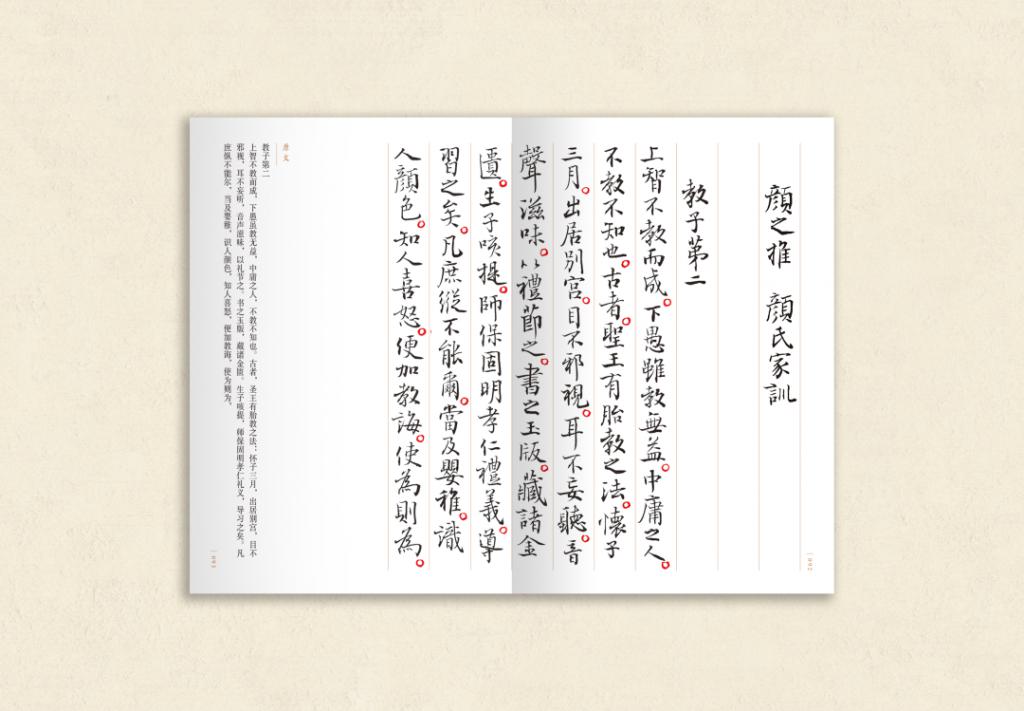 顏之推 顏氏家訓
教子第二
上智不教而成。下愚雖教無益。中庸之人。
不教不知也。古者。聖王有胎教之法。懷子
三月。出居別宮。目不邪視。耳不妄聽。音
聲滋味。以禮節之。書之玉版。藏諸金
匱。生子咳提。師保固明孝仁禮義。導
習之矣。凡庶縱不能爾。當及嬰稚。識
人顏色。知人喜怒。便加教誨。使為則為。
原文
教子第二
上智不教而成，下愚虽教无益，中庸之人，不教不知也。古者，圣王有胎教之法：怀子三月，出居别宫，目不
邪视，耳不妄听，音声滋味，以礼节之。书之玉版，藏诸金匮。生子咳提，师保固明孝仁礼义，导习之矣。凡
庶纵不能尔，当及婴稚，识人颜色，知人喜怒，便加教诲，使为则为。
092
093